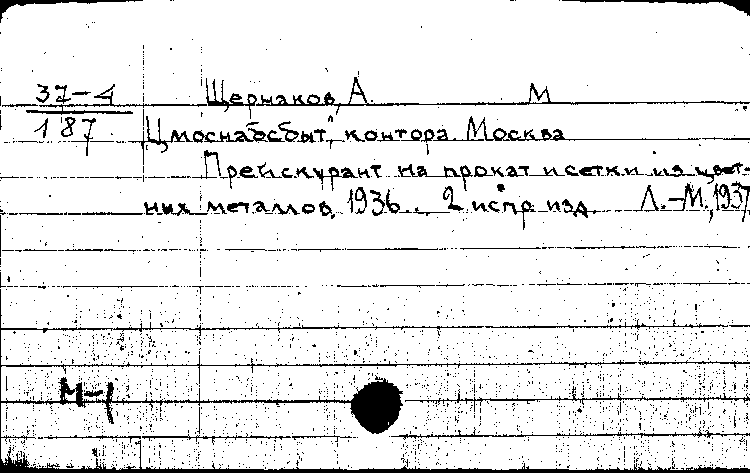 37-4 Щермаков, А. М
187 „Цмоснабсбыт", контора. Москва
Прейскурант на прокат и сетки из цвет-
ных металлов, 1936... 2 испр. изд. Л.-М., 1937
М-1